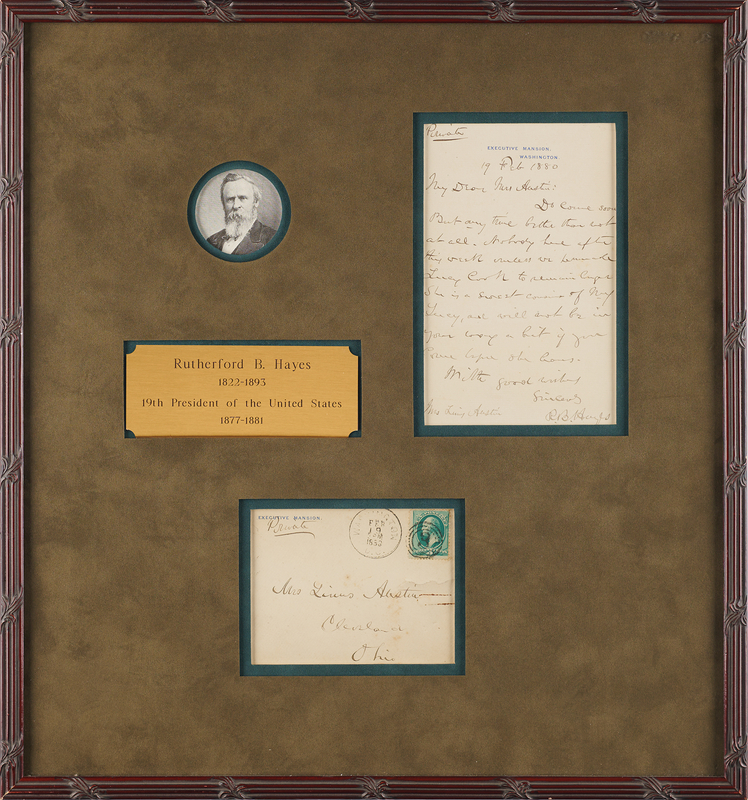 Private
EXECUTIVE MANSION.
WASHINGTON.
19 Feb 1880
My Dear Mrs Austin:
Do come soon
But any time better than not
at all. Nobody here after
this week unless we
Lucy Cook to remain
She is a sweet cousin of My
Lucy, and will not be in
your way a bit if you
come before she leaves.
With good wishes
Sincerely
R.B. Hayes
Mrs Linus Austin
Rutherford B. Hayes
1822-1893
19th President of the United States
1877-1881
EXECUTIVE MANSION.
Private
WASHINGTON
FEB
19
1880
Mrs Linus Austin
Cleveland
Ohio